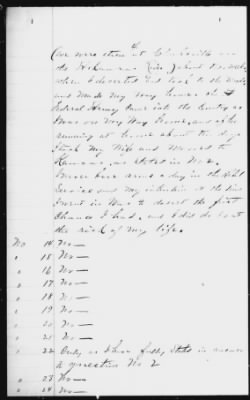 we were then at Clarksville on
the Arkansas River
when I deserted and took to the woods
and made my way home at
Federal Army came into the Country as
I was on my way home, and after
running at home about ten days
I took my Wife and Moved to
Kansas, as stated in No 2.
I never bore arms a day in the Rebel
Service and my intention at the time
I went in was to desert the first
chance I had, and I did do so at
the risk of my life.
No 14 No —
" 15 No —
" 16 No —
" 17 No —
" 18 No —
" 19 No —
" 20 No —
" 21 No —
" 22 Only as I have fully stated in answer
to question No 2
" 23 No —
" 24 No —